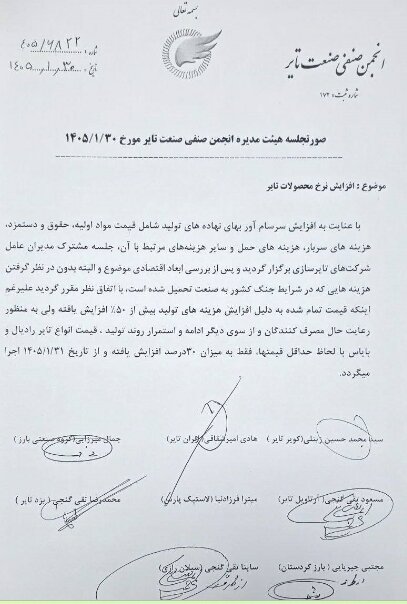 بسمه تعالی
انجمن صنفی صنعت تایر
شماره ثبت: ۱۷۲
شماره: ۴۰۵/۶۸۲۲
تاریخ: ۱۴۰۵/۱/۳۰
صورتجلسه هیئت مدیره انجمن صنفی صنعت تایر مورخ ۱۴۰۵/۱/۳۰
موضوع : افزایش نرخ محصولات تایر
با عنایت به افزایش سرسام آور بهای نهاده های تولید شامل قیمت مواد اولیه، حقوق و دستمزد،
هزینه های سربار، هزینه های حمل و سایر هزینه‌های مرتبط با آن، جلسه مشترک مدیران عامل
شرکت‌های تایرسازی برگزار گردید و پس از بررسی ابعاد اقتصادی موضوع و البته بدون در نظر گرفتن
هزینه هایی که در شرایط جنگ کشور به صنعت تحمیل شده است، با اتفاق نظر مقرر گردید علیرغم
اینکه قیمت تمام شده به دلیل افزایش هزینه های تولید بیش از ۵۰٪ افزایش یافته ولی به منظور
رعایت حال مصرف کنندگان و از سوی دیگر ادامه و استمرار روند تولید ، قیمت انواع تایر رادیال و
بایاس با لحاظ حداقل قیمتها، فقط به میزان ۳۰درصد افزایش یافته و از تاریخ ۱۴۰۵/۱/۳۱ اجرا
میگردد.
سینا محمد حسین زینلی(کویر تایر ) هادی امیر (ایران تایر) جمال میرزایی(گروه صنعتی بارز )
مسعود تقی گنجی( آرتاویل تایر) میترا فرزادنیا (لاستیک پارس) محمدرضا تقی گنجی( یزد تایر )
مجتبی جیریایی ( بارز کردستان) ساینا تقی گنجی (سیلان رازی)
از طرف
از طرف